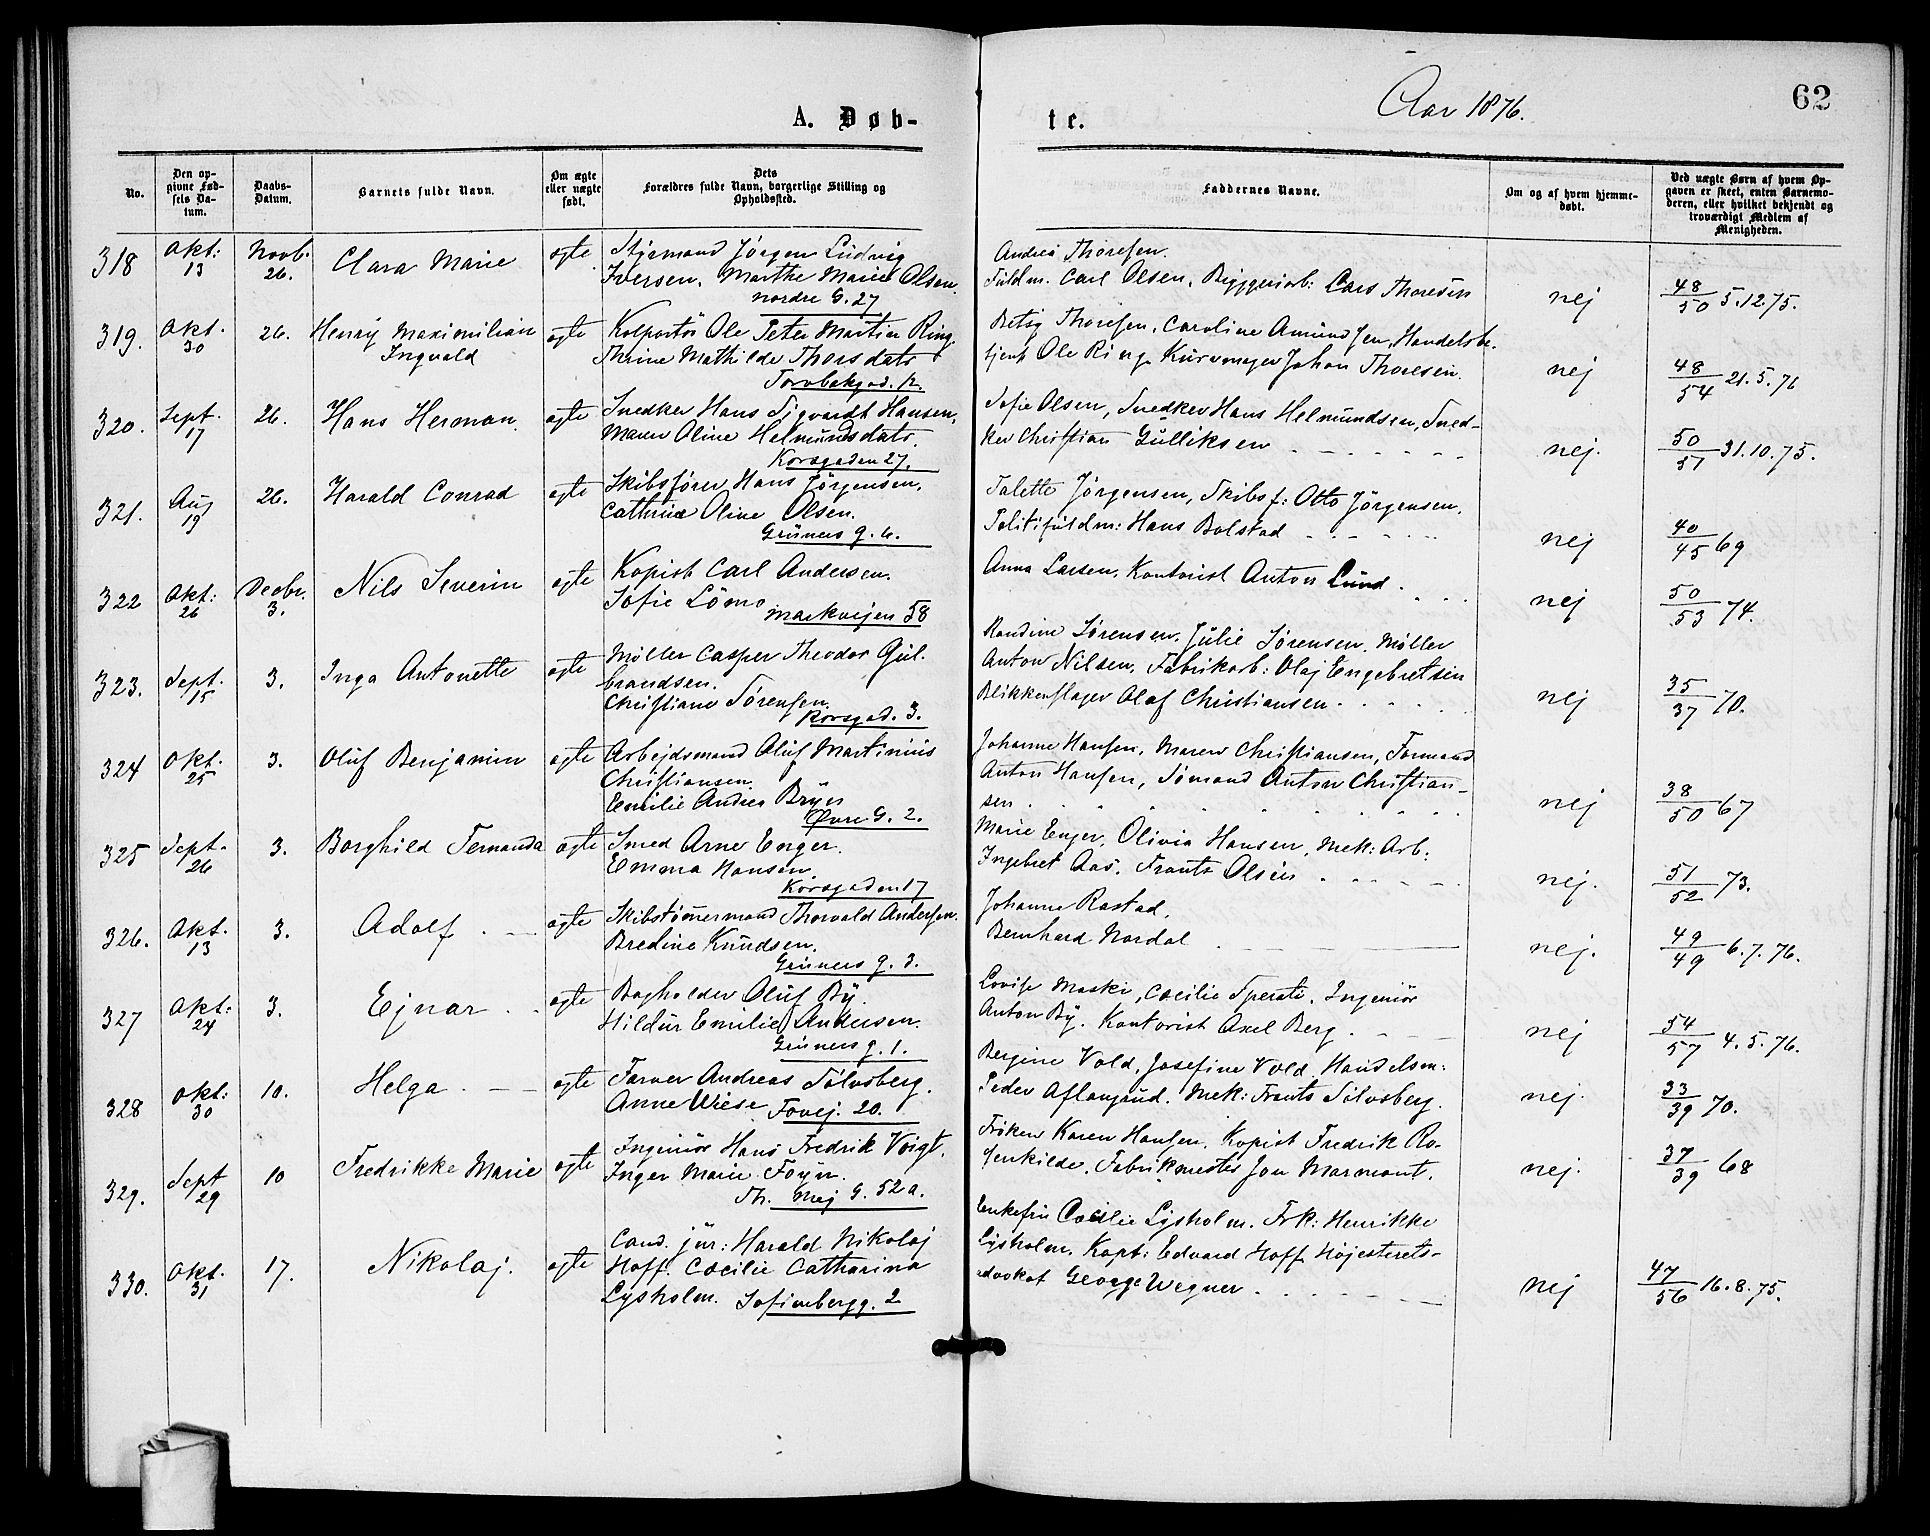 Aar 1876.
62
A. Døb-
te.
No.
Den op-
givne Fød-
sels Da-
tum.
Daabs-
Datum.
Barnets fulde Navn.
Om ægte
eller uægte
født.
Dets
Forældres fulde Navn, borgerlige Stilling og
Opholdssted.
Faddernes Navne.
Om og af hvem hjemme-
døbt.
Ved uægte Børn af hvem Op-
gaven er skeet, enten Barnemo-
deren, eller hvilket bekjendt og
troværdigt Medlem af
Menigheden.
318 Okt: 13 Novb. 26. Clara Marie ægte
Styrmand Jörgen Ludvig
Iversen. Marthe Marie Olsen.
nordre G. 27
Andrea Thoresen.
Fuldm. Carl Olsen. Bryggeriarb: Lars Thoresen
nej 48/50 5.12.75.
319. Okt. 30 26. Henry Maximilian
Ingvald ægte
Kolportör Ole Peter Martin Ring.
Thrine Mathilde Thorsdatr
Torvbakgad. 12.
Betsy Thoresen. Caroline Amundsen, Handelsbe-
tjent Ole Ring. Kurvmager Johan Thoresen.
nej 48/54 21.5.71
320. Sept. 17 26. Hans Herman. ægte
Snedker Hans Sigvardt Hansen,
Maren Oline Helmundsdatr.
Korsgaden 27.
Sofie Olsen, Snedker Hans Helmundsen, Sned-
ker Christian Gulliksen
nej. 50/51 31.10.75.
321. Aug 19 26. Harald Conrad ægte
Skibsförer Hans Jörgensen,
Cathrine Oline Olsen.
Grüners g. 6.
Talette Jörgensen, Skibsf: Otto Jörgensen.
Politifuldm: Hans Bolstad
nej 40/45 69
322 Okt: 26 Decbr. 3. Nils Severin ægte
Kopist Carl Andersen.
Sofie Lömo
Markvejen 58
Anna Larsen. Kontorist Anton Lund.
nej 50/53 74.
323. Sept. 15 3. Inga Antonette ægte
Møller Casper Theodor Gul-
brandsen.
Christiane Sørensen.
Korsgad. 3.
Randine Sørensen. Julie Sørensen. Møller
Anton Nilsen. Fabrikarb: Olaj Engebretsen
Blikkenslager Olaf Christiansen.
nej 35/37 70.
324 Okt. 25 3. Oluf Benjamin ægte
Arbejdsmand Oluf Martinius
Christiansen.
Emilie Andrea Bryn
Øvre G. 2.
Johanne Hansen. Maren Christiansen, Formand
Anton Hansen, Sømand Anton Christian-
sen
nej 38/50 67
325 Sept. 26 3. Borghild Fernanda ægte
Smed Arne Enger.
Emma Hansen.
Korsgaden 17
Marie Enger. Olivia Hansen, Mek: Arb:
Ingebret Aas. Frants Olsen
nej. 51/52 73.
326. Okt. 13 3. Adolf ægte
Skibstømmermand Thorvald Andersen.
Bredine Knudsen.
Grüners g. 3.
Johanne Rastad.
Bernhard Nordal
nej. 49/49 6.7.76.
327 Okt: 24 3. Ejnar ægte
Bogholder Oluf By.
Hildur Emilie Andersen.
Grüners g. 1.
Lovise Maski, Cæcilie Sperati. Ingeniör
Anton By. Kontorist Axel Berg.
nej 54/57 4.5.76.
328 Okt: 30 10. Helga ægte
Farver Andreas Sölvsberg.
Anne Wiese
Fovej. 20.
Bergine Vold, Josefine Vold. Handelsm:
Peder Aflangrud. Mek: Frants Sölvsberg.
nej. 33/39 70.
329. Sept 29 10 Fredrikke Marie ægte
Ingeniör Hans Fredrik Voigt.
Inger Marie Foyn.
Th. Mej G. 52a.
Fröken Karen Hansen. Kopist Fredrik Ro-
senkilde. Fabrikmester Jon Marmont.
nej. 37/39 68
330. Okt. 31 17. Nikolaj. ægte
Cand. jur: Harald Nikolaj
Hoff. Cæcilie Catharina
Lysholm. Sofienbergg. 2
Enkefru Cæcilie Lysholm. Frk: Henrikke
Lysholm. Kapt: Edvard Hoff Højesterets-
advokat George Wegner
nej 47/56 16.8.75.